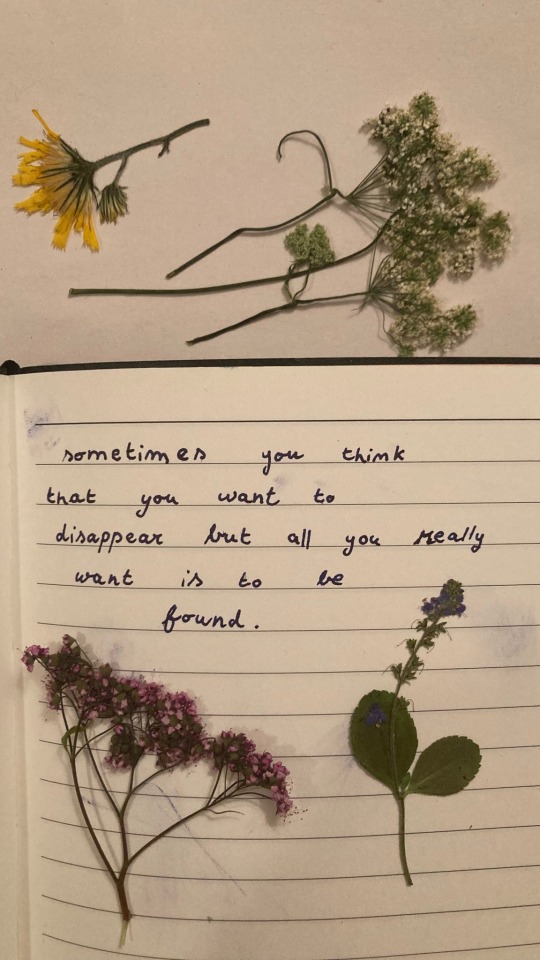 sometimes you think
that you want to
disappear but all you really
want is to be
found.